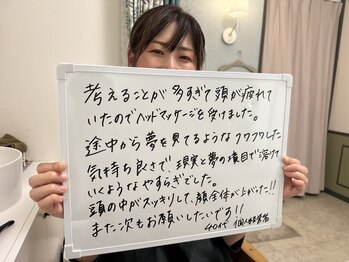 考えることが多すぎて頭が疲れて
いたのでヘッドマッサージを受けました。
途中から夢を見てるようなフワフワした
気持ち良さで現実と夢の境目で溶けて
いくようなやすらぎでした。
頭の中がスッキリして、顔全体が上がった!!
また次もお願いしたいです!!
40代 個人事業者